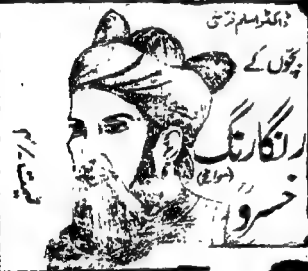 ڈاکٹر اسلم فرخی
بچوں کے
رنگا رنگ
خسرو